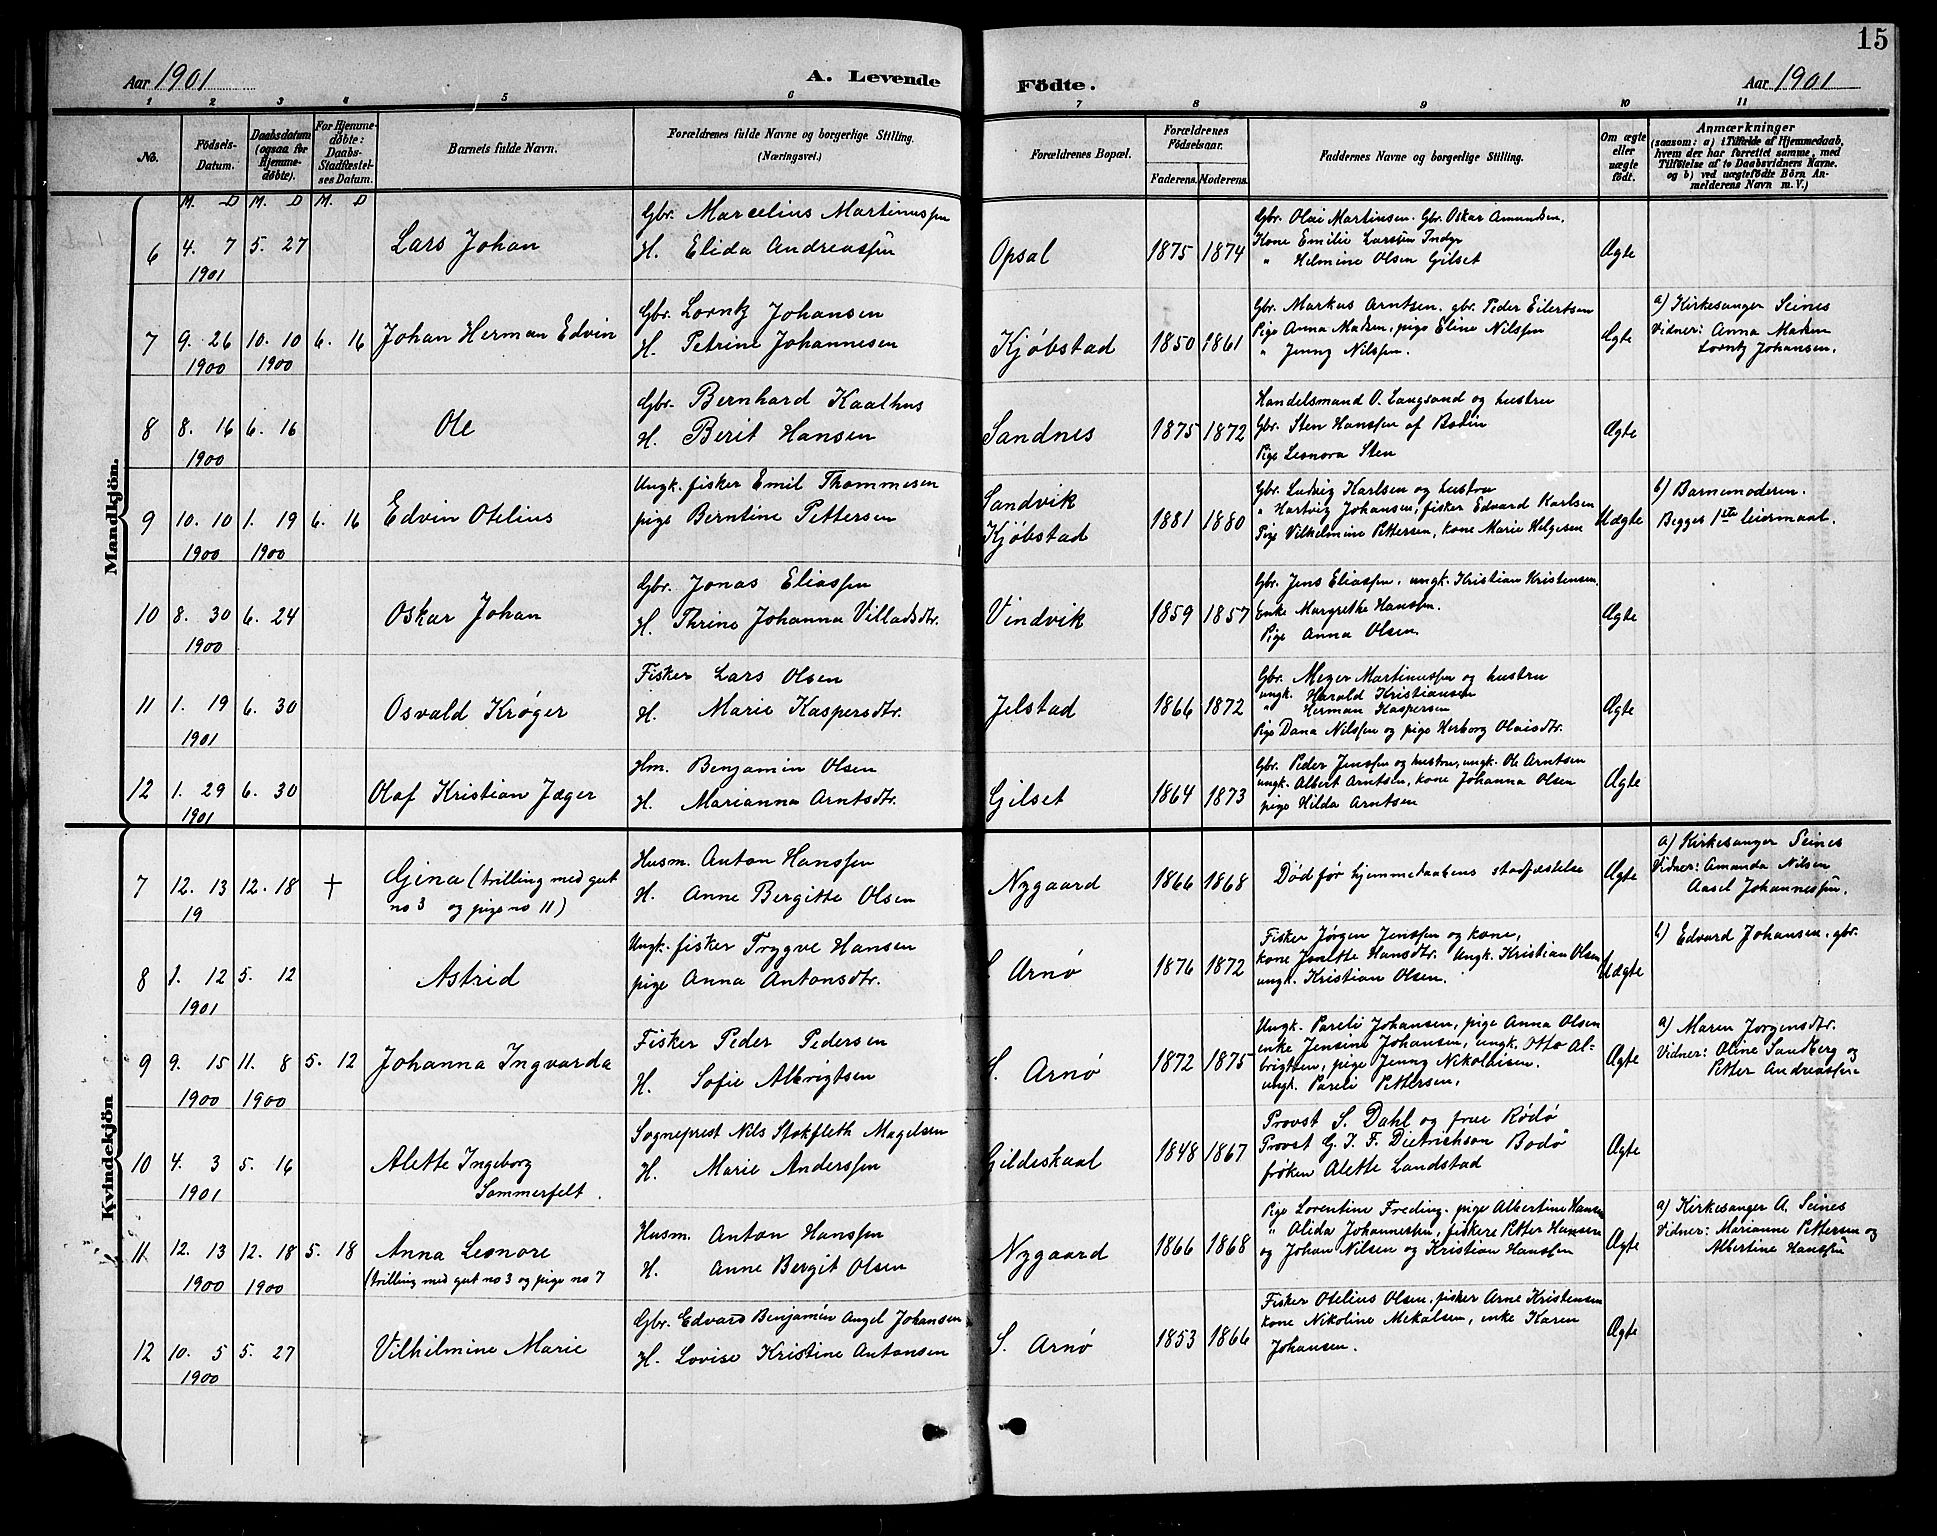 15
Aar 1901 A. Levende Födte. Aar 1901
1 2 3 4 5 6 7 8 9 10 11
No. Födsels-Datum. Daabsdatum (ogsaa for Hjemmedöbte). For Hjemmedöbte: Daabs-Stadfæstelses Datum. Barnets fulde Navn. Forældrenes fulde Navne og borgerlige Stilling. (Næringsvei.) Forældrenes Bopæl. Forældrenes Födselsaar. Faderens. Moderens. Faddernes Navne og borgerlige Stilling. Om ægte eller uægte födt. Anmærkninger (saasom: a) i Tilfælde af Hjemmedaab, hvem der har forrettet samme, med Tilföielse af to Daabsvidners Navne, og b) ved uægtefödte Börn Anmelderens Navn m. V.)
M. D M. D M. D
Mandkjön.
6 4. 7 1901 5. 27 Lars Johan
Gbr. Marcelius Martinussen
H. Elida Andreassen
Opsal 1875 1874
Gbr. Olai Martinsen. Gbr. Oskar Amundsen.
Kone Emilie Larssen Indyr
" Helmine Olsen Gilset
Ægte
7 9. 26 1900 10. 10 1900 6. 16 Johan Herman Edvin
Gbr. Lorntz Johansen
H. Petrine Johannesen
Kjøbstad 1850 1861
Gbr. Markus Arntsen. gbr. Peder Eilertsen
Pige Anna Matsen, pige Eline Nilssen
" Jenny Nilssen.
Ægte
a) Kirkesanger Seines
Vidner: Anna Matsen
Lorntz Johansen.
8 8. 16 1900 6. 16 Ole
Gbr. Bernhard Kaalhus
H. Berit Hansen
Sandnes 1875 1872
Handelsmand O. Langsand og hustru
Gbr. Sten Hanssen af Bodin
Pige Leonora Sten
Ægte
9 10. 10 1900 1. 19 1900 6. 16 Edvin Otelius
Ungk. fisker Emil Thommesen
pige Berntine Pettersen
Sandvik
Kjøbstad
1881 1880
Gbr. Ludvig Karlsen og hustru
" Hartvig Johansen, fisker Edvard Karlsen
Pige Vilhelmine Pettersen, kone Marie Helgesen
Uægte
b) Barnemoderen.
Begges 1ste leiermaal.
10 8. 30 1900 6. 24 Oskar Johan
Gbr. Jonas Eliassen
H. Thrine Johanna Villadsdtr.
Vindvik 1859 1857
Gbr. Jens Eliassen, ungk. Kristian Kristensen.
Enke Margrethe Hanssen.
Pige Anna Olsen.
Ægte
11 1. 19 1901 6. 30 Osvald Krøger
Fisker Lars Olsen
H. Marie Kaspersdtr.
Jelstad 1866 1872
Gbr. Meyer Martinussen og hustru
ungk. Harald Kristiansen
" Herman Kaspersen
Pige Dana Nilssen og pige Herborg Olaisdtr.
Ægte
12 1. 29 1901 6. 30 Olaf Kristian Jæger
Hm. Benjamin Olsen
H. Marianna Arntsdtr.
Gilset 1864 1873
Gbr. Peder Jenssen og hustru, ungk. Ole Arntsen
ungk. Albert Arntsen, kone Johanna Olsen
pige Hilda Arntsen
Ægte
Kvindekjön
7 12. 13 19 12. 18 + Gina (trilling med gut
no 3 og pige no 11)
Husm. Anton Hanssen
H. Anne Bergitte Olsen
Nygaard 1866 1868
Død før hjemmedaabens stadfæstelse
Ægte
a) Kirkesanger Seines
Vidner: Amanda Nilsen
Aasel Johannessen.
8 1. 12 1901 5. 12 Astrid
Ungk. fisker Trygve Hansen
pige Anna Antonsdtr.
S. Arnø 1876 1872
Fisker Jørgen Jenssen og kone,
kone Jonette Hansdtr. Ungk. Kristian Olsen
ungk. Kristian Olsen.
Uægte
b) Edvard Johansen. gbr.
9 9. 15 1900 11. 8 1900 5. 12 Johanna Ingvarda
Fisker Peder Pedersen
H. Sofie Albrigtsen
S. Arnø 1872 1875
Ungk. Pareli Johansen, pige Anna Olsen
enke Jensine Johansen, ungk. Otto Al-
brigtsen, pige Jenny Nikolaisen.
ungk. Pareli Pettersen.
Ægte
a) Maren Jørgensdtr.
Vidner: Oline Sandberg og
Petter Andreassen
10 4. 3 1901 5. 16 Alette Ingeborg
Sommerfelt.
Sogneprest Nils Stokfleth Magelsen
H. Marie Anderssen
Gildeskaal 1848 1867
Provst S. Dahl og frue Rødø
Provst G. J. F. Dietrichson Bodø
frøken Alette Landstad
Ægte
11 12. 13 1900 12. 18 1900 5. 18 Anna Leonore
(trilling med gut no 3 og pige no 7
Husm. Anton Hanssen
H. Anne Bergit Olsen
Nygaard 1866 1868
Pige Lorentine Freding. pige Albertine Hansen
" Alida Johannessen, fiskere Petter Hansen
og Johan Nilsen og Kristian Hanssen
Ægte
a) Kirkesanger A. Seines
Vidner: Marianne Pettersen og
Albertine Hanssen
12 10. 5 1900 5. 27 Vilhilmine Marie
Gbr. Edvard Benjamin Angel Johansen
H. Lovise Kristine Antonsen
S. Arnø 1853 1866
Fisker Otelius Olsen. fisker Arne Kristensen
kone Nikoline Mekalsen, enke Karen
Johansen.
Ægte